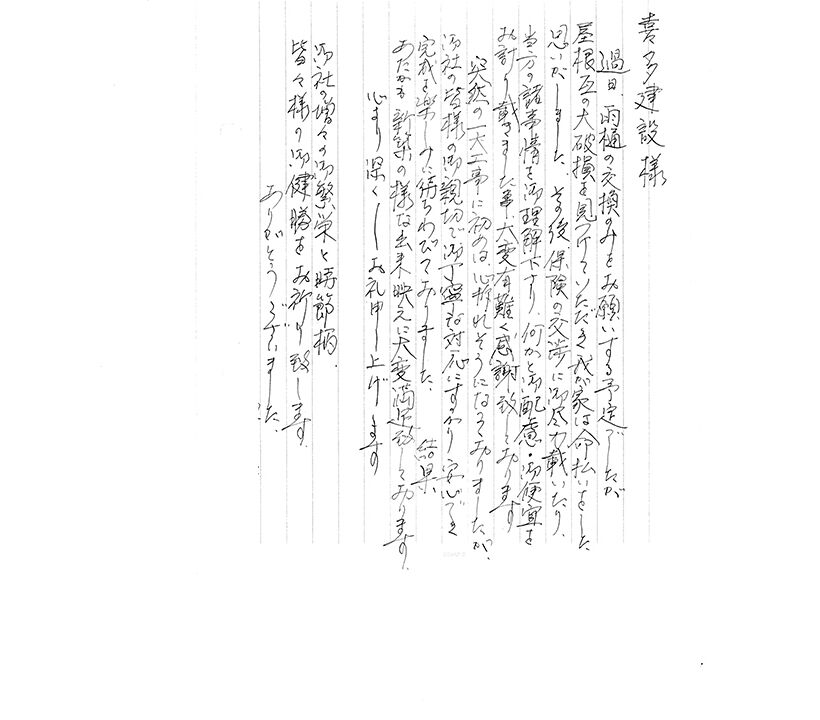 喜多建設様
過日、雨樋の交換のみをお願いする予定でしたが
屋根瓦の大破損を見つけていただき我が家は命払いをした
思いがしました。その後保険の交渉に御尽力戴いたり、
当方の諸事情を御理解下さり、何かと御配慮・御便宜を
お計り戴きました事、大変有難く感謝致しております
突然の一大工事に初めは、心折れそうになっておりましたが、
御社の皆様の御親切で御丁寧な対応にすっかり安心でき
完成を楽しみに待ちわびておりました。 結果、
あたかも新築の様な出来映えに大変満足致しております。
心より深く お礼申し上げます
御社の増々の御繁栄と時節柄、
皆々様の御健勝をお祈り致します。
ありがとうございました。